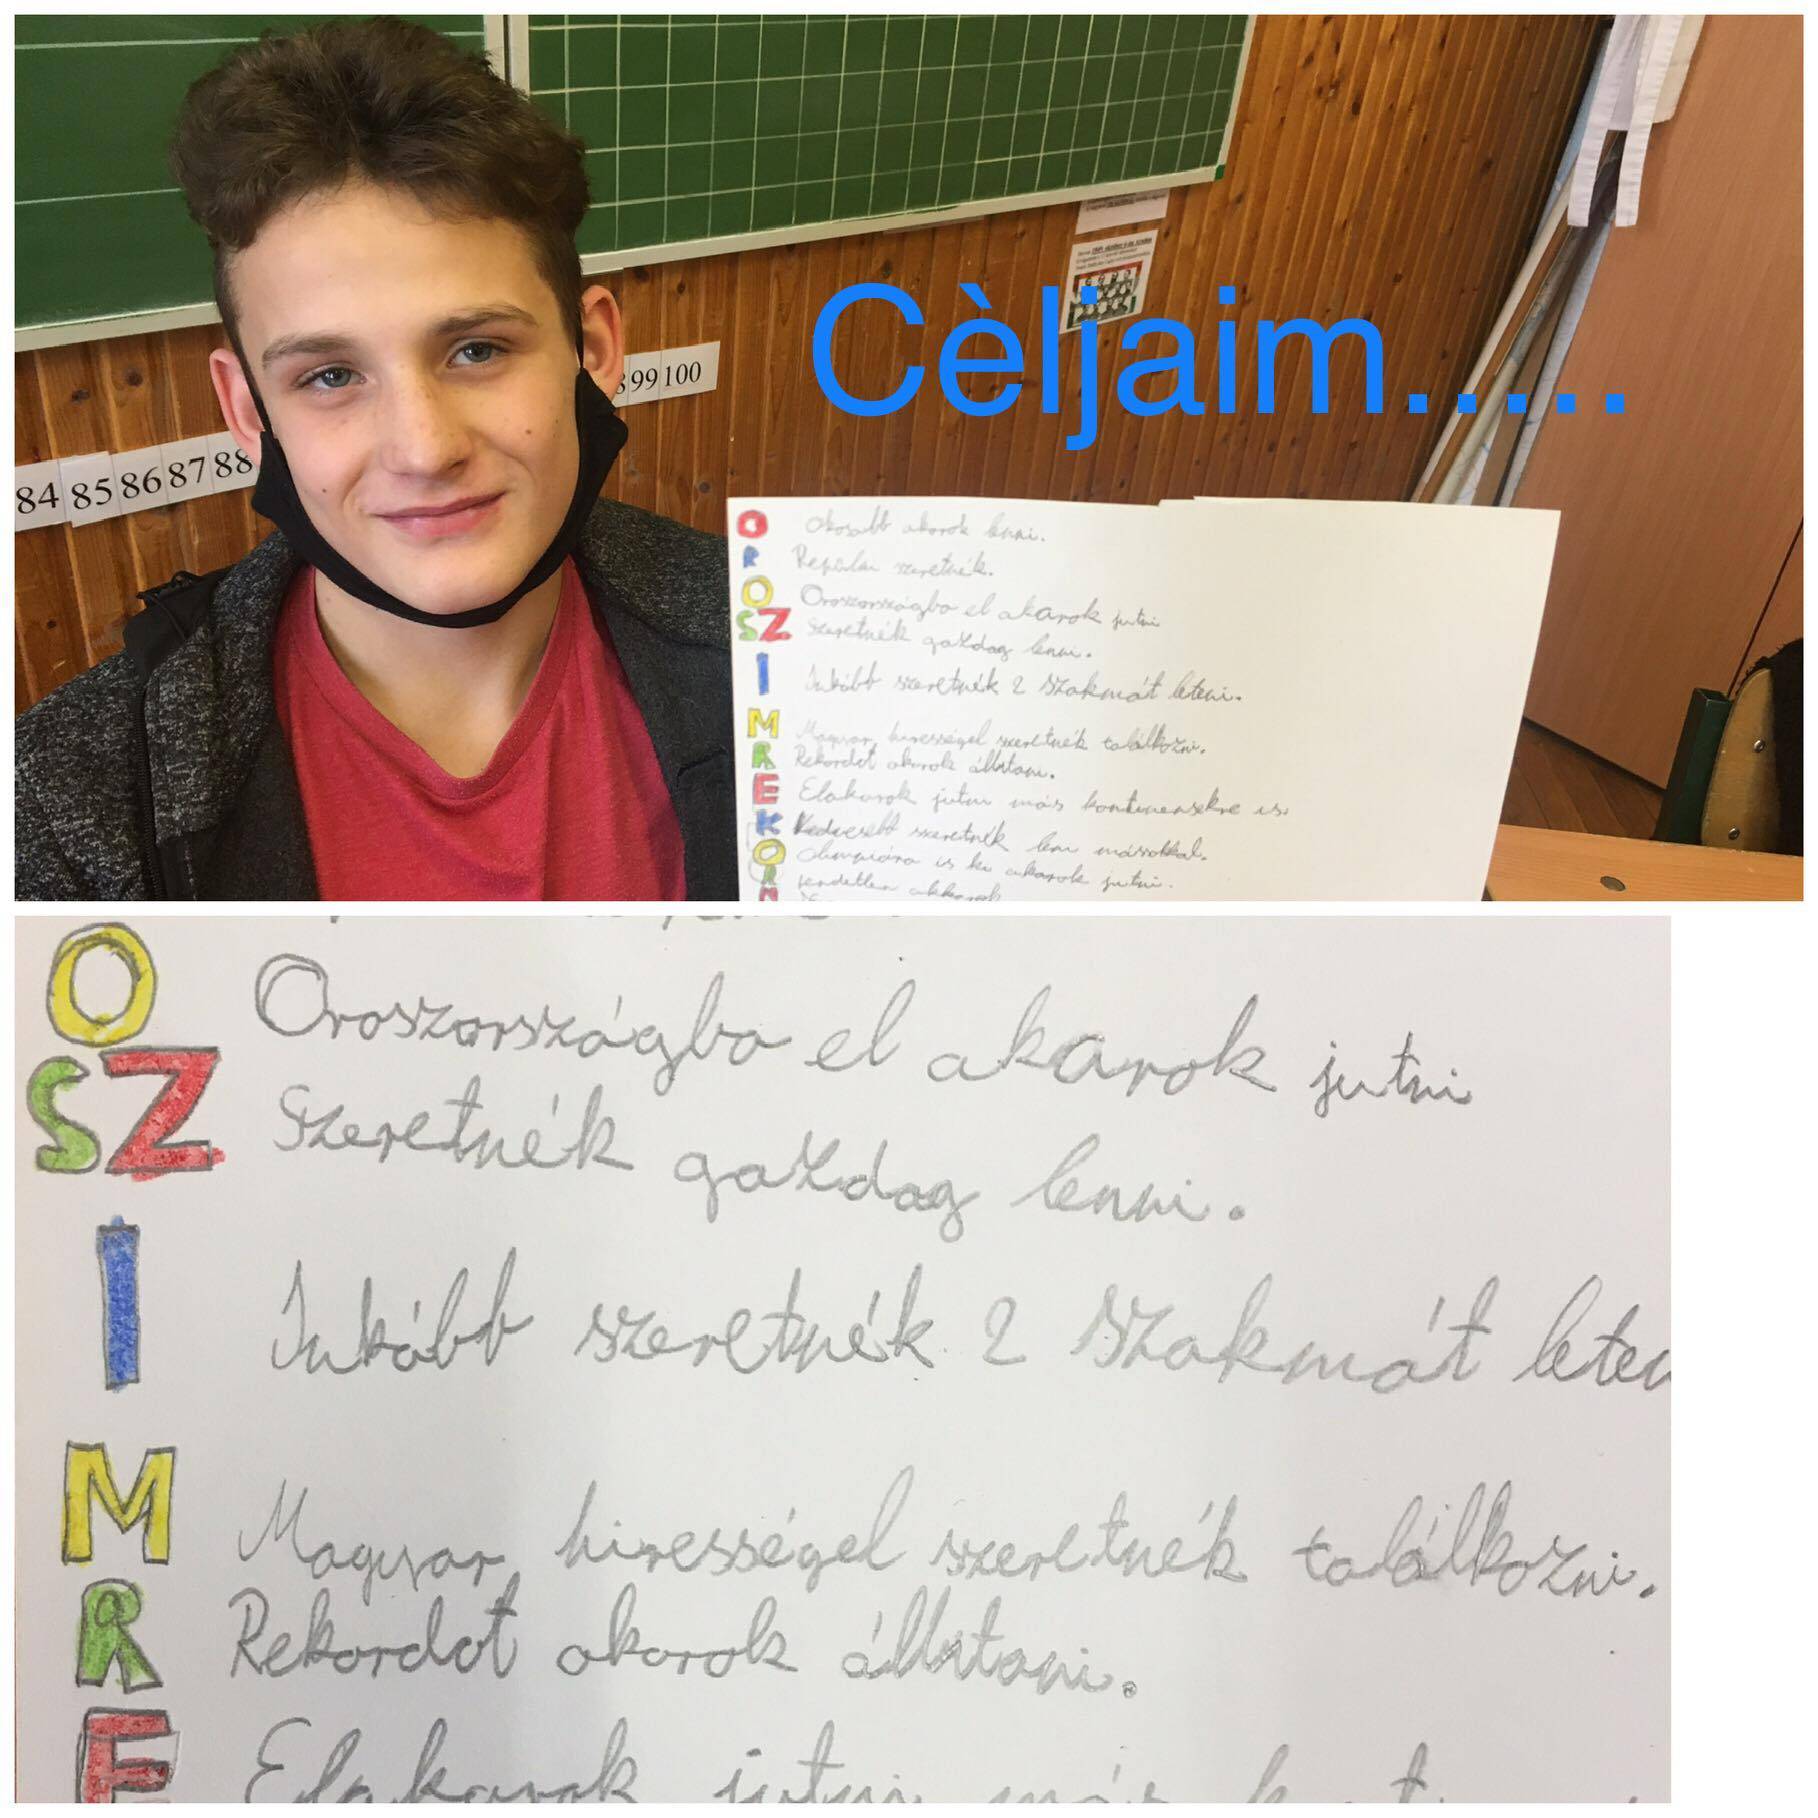 84 85 86 87 88
99 100
Cèljaim.....
O Okosabb akarok lenni.
R Repülni szeretnék.
O Oroszországba el akarok jutni
SZ Szeretnék gazdag lenni.
I Inkább szeretnék 2 szakmát letenni.
M Magyar hirességel szeretnék találkozni.
R Rekordot akarok állitani.
E Elakarok jutni más kontinensekre is.
K Kedvesebb szeretnék lenni másokkal.
O Olimpiára is ki akarok jutni.
R
N
O Oroszországba el akarok jutni
SZ Szeretnék gazdag lenni.
I Inkább szeretnék 2 szakmát leten
M Magyar hirességel szeretnék találkozni.
R Rekordot akarok állitani.
E Elakarok jutni más